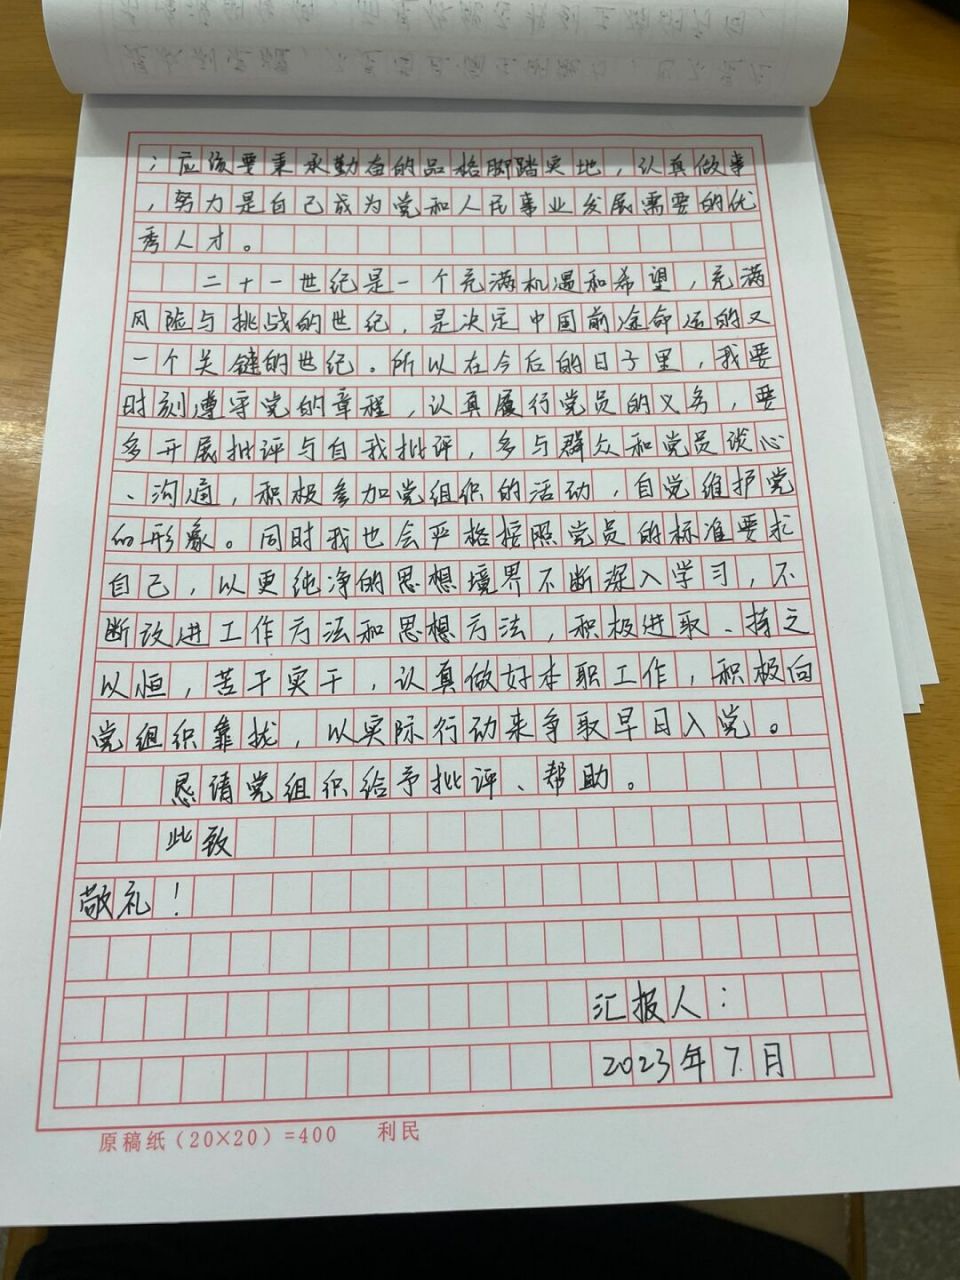 ；应该要秉承勤奋的品格脚踏实地，认真做事
，努力是自己成为党和人民事业发展需要的优
秀人才。
二十一世纪是一个充满机遇和希望，充满
风险与挑战的世纪，是决定中国前途命运的又
一个关键的世纪。所以在今后的日子里，我要
时刻遵守党的章程，认真履行党员的义务，要
多开展批评与自我批评，多与群众和党员谈心
、沟通，积极参加党组织的活动，自觉维护党
的形象。同时我也会严格按照党员的标准要求
自己，以更纯净的思想境界不断深入学习，不
断改进工作方法和思想方法，积极进取、持之
以恒，苦干实干，认真做好本职工作，积极向
党组织靠拢，以实际行动来争取早日入党。
恳请党组织给予批评、帮助。
此致
敬礼！
汇报人：
2023年7月
原稿纸（20×20）=400 利民